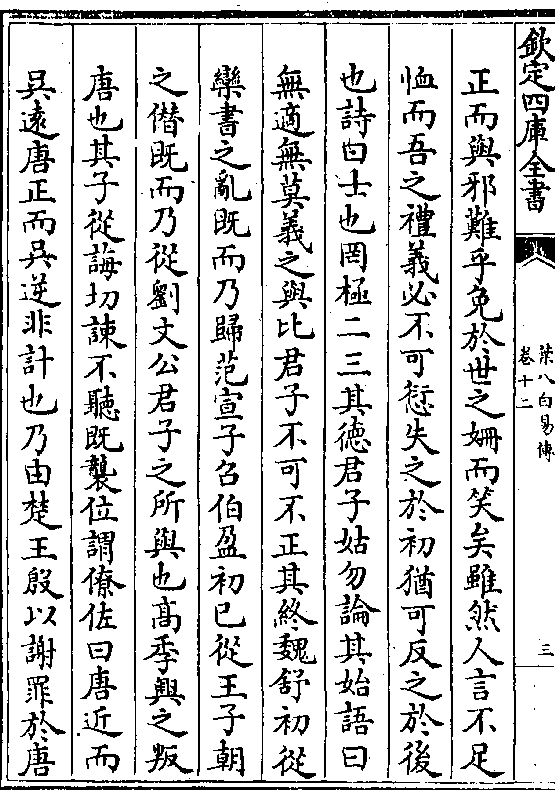 欽定四庫全書
柒八白易傳
卷十二
三
正而與邪難乎免於世之姍而笑矣雖然人言不足
恤而吾之禮義必不可愆失之於初猶可反之於後
也詩曰士也罔極二三其德君子姑勿論其始語曰
無適無莫義之與比君子不可不正其終魏舒初從
欒書之亂既而乃歸范宣子召伯盈初已從王子朝
之僭既而乃從劉文公君子之所與也高季興之叛
唐也其子從誨切諫不聽既襲位謂僚佐曰唐近而
吳遠唐正而吳逆非計也乃由楚王殷以謝罪於唐